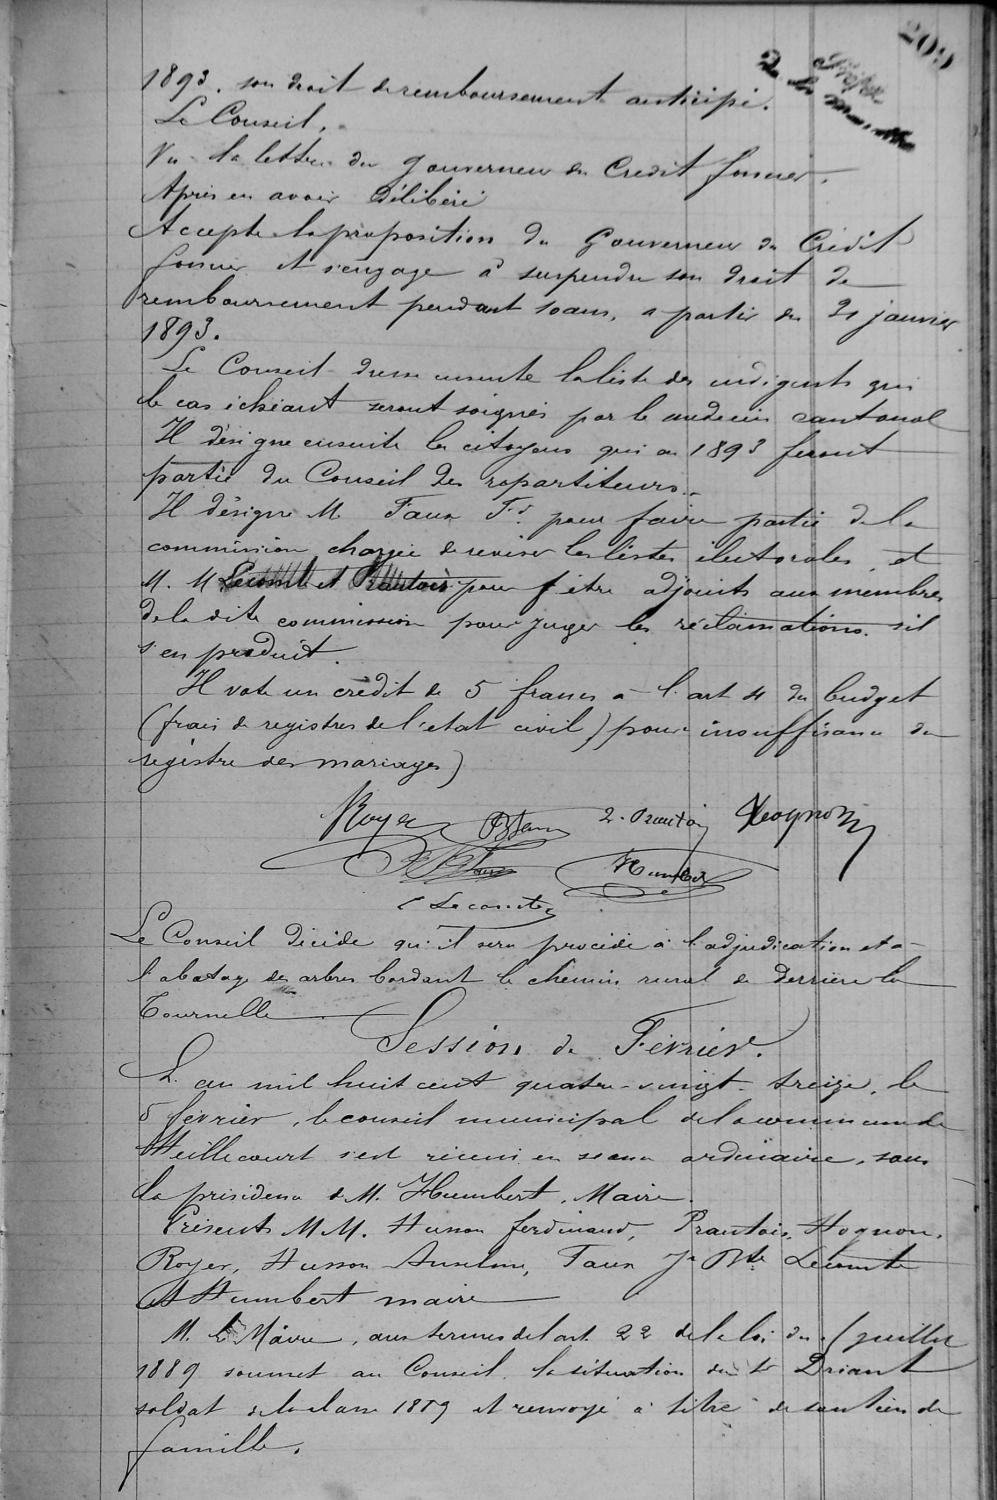 209
1893. son droit de remboursement anticipé.
Le Conseil,
Vu la lettre du gouverneur du Crédit foncier.
Après en avoir délibéré
Accepte la proposition du Gouverneur du Crédit
foncier et s'engage à suspendre son droit de
remboursement pendant 10 ans, a partir du 21 janvier
1893.
Le Conseil dresse ensuite la liste des indigents qui
le cas échéant seront soignés par le médecin cantonal
Il désigne ensuite les citoyens qui en 1893 feront
partie du Conseil des repartiteurs.
Il désigne M Faux Fd. pour faire partie de la
commission chargée de reviser les listes électorales, et
M. M Lecomte et Prautois pour être adjoints aux membres
de la dite commission pour juger les réclamations s'il
s'en produit.
Il vote un crédit de 5 francs à l'art 4 du budget
(frais de registres de l'état civil) pour insuffisance du
registre des mariages)
Royer 2. Prautois Hognon
Humbert
Lecomte
Le Conseil décide qu'il sera procédé à l'adjudication et à
l'abatage des arbres bordant le chemin rural de derrière la
Tournelle
Session de Février.
L'an mil huit cent quatre-vingt-treize, le
5 février, le conseil municipal de la commune de
Heillecourt s'est réuni en séance ordinaire, sous
la présidence de M. Humbert, Maire.
Présents MM. Husson ferdinand, Prautois, Hognon,
Royer, Husson Anselme, Faux Jn Bte Lecomte
et Humbert maire
M. le Maire, aux termes de l'art 22 de la loi du juillet
1889 soumet au Conseil la situation du sr Driant
soldat de la classe 1889 et renvoyé à titre de soutien de
famille.